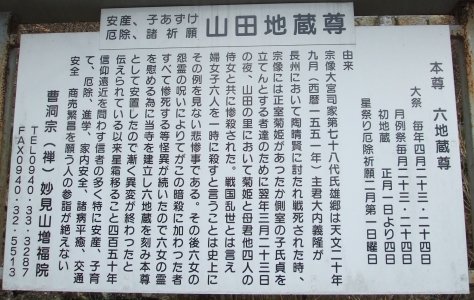 安産、子あずけ
厄除、諸祈願
山田地蔵尊
本尊 六地蔵尊
大祭 毎年四月二十三・二十四日
月例祭毎月二十三・二十四日
初地蔵 正月一日より四日
星祭り厄除祈願二月第一日曜日
由来
宗像大宮司家第七十八代氏雄郷は天文二十年
九月(西暦一五五一年)主君大内義隆が
長州において陶晴賢に討たれ戦死された時、
宗像には正室菊姫があったが側室の子氏貞を
立てんとする者達のために翌年三月二十三日
の夜、山田の里において菊姫と母君他四人の
侍女と共に惨殺された。戦国乱世とは言え
婦女子六人を一時に殺すと言うことは史上に
その例を見ない悲惨事である。その後六女の
怨霊の呪いによりてがこの暗殺に加わった者
すべて惨死する等怪異が続いたので六女の霊
を慰める為に当寺を建立し六地蔵を刻み本尊
として安置したので漸く異変が終わったと
伝えられている以来星霜移ること四百五十年
信仰遠近を問わず信者の多く特に安産、子育
て、厄除、進学、家内安全、諸病平癒、交通
安全 商売繁昌を願う人の参詣が絶えない
曹洞宗(禅)妙見山増福院
TEL0940・33・3287
FAX0940・32・5513